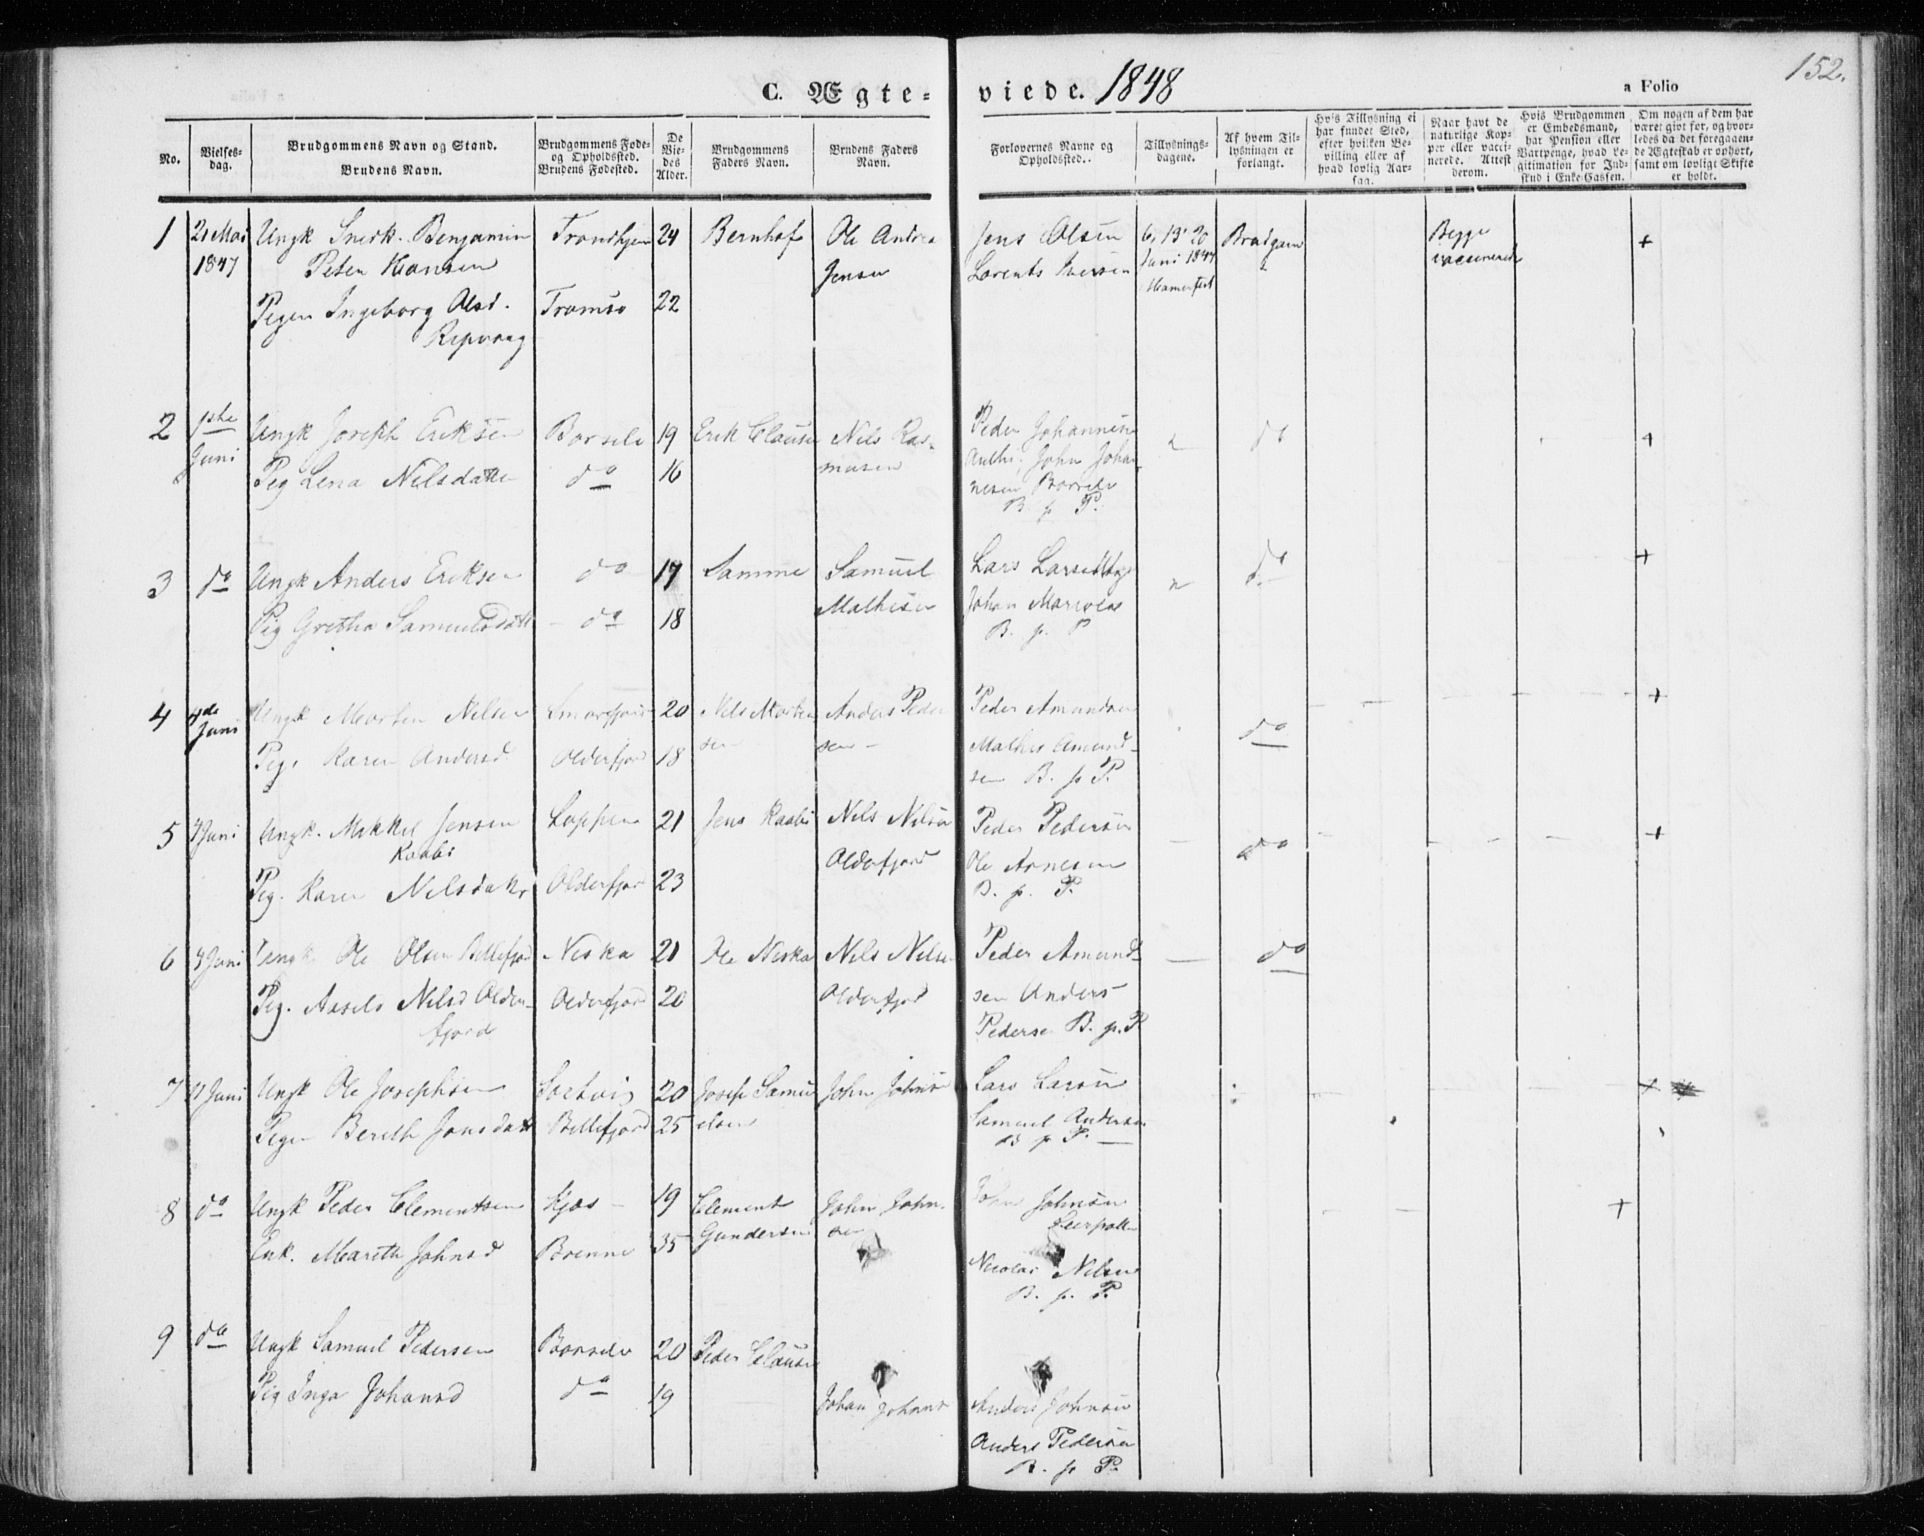 152.
C. Ægte-
viede. 1848
a Folio
No.
Vielses-
dag.
Brudgommens Navn og Stand.
Brudens Navn.
Brudgommens Føde-
og Opholdssted.
Brudens Fødested.
De
Vie-
des
Alder.
Brudgommens
Faders Navn.
Brudens Faders
Navn.
Forlovernes Navne og
Opholdssted.
Tillysnings-
dagene.
Af hvem Til-
lysningen er
forlangt.
Hvis Tillysning ei
har fundet Sted,
efter hvilken Be-
villing eller af
hvad lovlig Aar-
sag.
Naar havt de
naturlige Kop-
per eller vacci-
nerede. Attest
derom.
Hvis Brudgommen
er Embedsmand,
har Pension eller
Vartpenge, hvad Le-
gitimation for Ind-
skud i Enke-Cassen.
Om nogen af dem har
været givt før, og hvor-
ledes da det foregaaen-
de Ægteskab er ophørt,
samt om lovligt Skifte
er holdt.
1
21 Mai
1847
Ungk Snedk. Benjamin
Peter Hansen
Pigen Ingeborg Olsd.
Repvaag
Trondhjem
Tromsø
24
22
Bernhof
Ole Andrea
Jensen
Jens Olsen
Lorents Iversen
6, 13, 20
Juni 1847
Hamerfest
Brudgom
Begge
vaccinerede
+
2
1ste
Juni
Ungk Joseph Eriksen
Pig Lena Nilsdatter
Borselv
do
19
16
Erik Clausen
Nils Ras-
musen
Peder Johannesen
John Johan
nesen Borselv
B. p P.
do
+
3
do
Ungk Anders Eriksen
Pig Gretha Samuelsdatt
do
do
17
18
Samme
Samuel
Mathisen
Lars Larsen
Johan
B. p. P
do
+
4
4de
Juni
Ungk Morten Nilsen
Pige Karen Andersd
Smørfjord
Olderfjord
20
18
Nils Morten
sen
Anders Peder
sen
Peder Amundsen
Mathis Amund-
sen B. p P.
do
+
5
4 Juni
Ungk. Mikkel Jensen
Kaabi
Pig. Karen Nilsdatr
Loppen
Olderfjor
21
23
Jens Kaabi
Nils Nilsen
Olderfjord
Peder Pedersen
Ole Arnesen
B. p. P.
do
+
6
4 Juni
Ungk Ole Olsen Billefjord
Pig. Nilsd Older-
fjord
Neska
Olderfjord
21
20
Ole Neska
Nils Nilsen
Olderfjord
Peder Amund-
sen Anders
Pedersen B. p. P
do
7
Juni
Ungk Ole Josephsen
Pigen Bereth Jonsdatt
Billefjord
20
25
Joseph Samu
elsen
John Johnsen
Lars Larsen
Samuel Andersen
B p P.
+
8
do
Ungk Peder Clementsen
Enk. Mareth Johnsd
Kjæs
Brenna
19
35
Clement
Gundersen
John John-
sen
John Johnsen
Leerpollen
Nicolai Nilsen
B. p. P.
+
9
do
Ungk Samuel Pedersen
Pig Inga Johansd
Borselv
do
20
19
Peder Clausen
Johan Johans
Anders Johnsen
Anders Pedersen
B. p P.